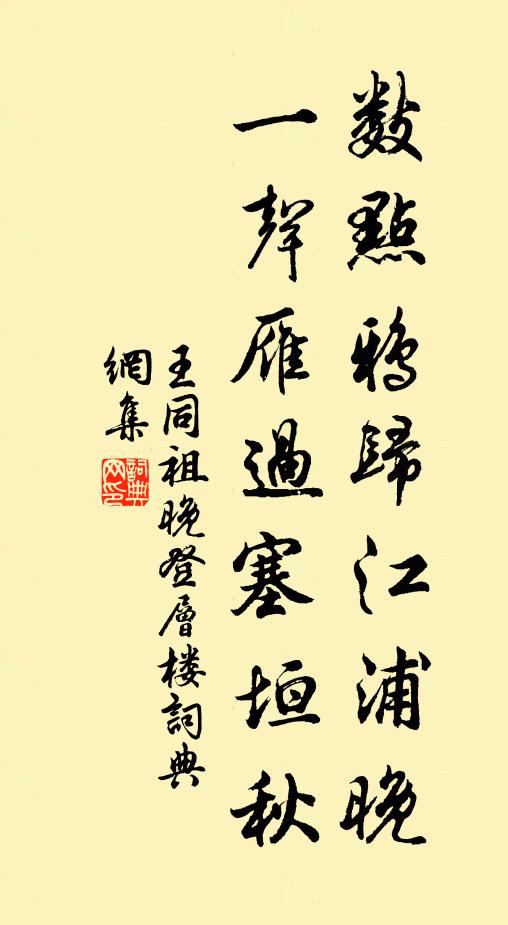 數點鴉歸江浦晚
一聲雁過塞垣秋
王同祖晚登層楼詞典
網集
詞典
网印